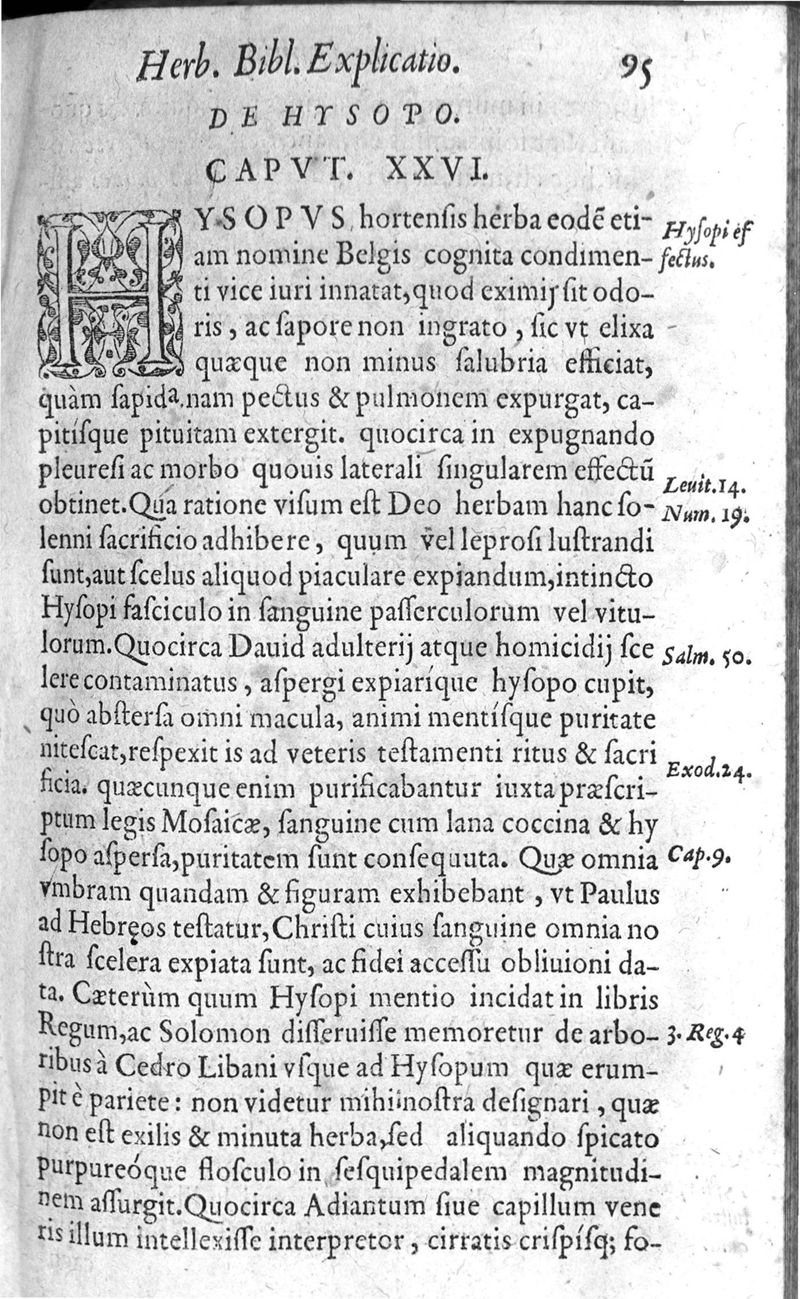 Herb. Bibl. Explicatio. 95
DE HYSOPO.
CAPVT. XXVI.
HYSOPVS hortenſis herba eodē eti-
am nomine Belgis cognita condimen-
ti vice iuri innatat, quod eximij ſit odo-
ris, ac ſapore non ingrato, ſic vt elixa
quæque non minus ſalubria efficiat,
quàm ſapida. nam pectus & pulmonem expurgat, ca-
pitíſque pituitam extergit. quocirca in expugnando
pleureſi ac morbo quouis laterali ſingularem effectū
obtinet. Qua ratione viſum eſt Deo herbam hanc ſo-
lenni ſacrificio adhibere, quum vel leproſi luſtrandi
ſunt, aut ſcelus aliquod piaculare expiandum, intincto
Hyſopi faſciculo in ſanguine paſſerculorum vel vitu-
lorum. Quocirca Dauid adulterij atque homicidij ſce
lere contaminatus, aſpergi expiaríque hyſopo cupit,
quò abſterſa omni macula, animi mentíſque puritate
niteſcat, reſpexit is ad veteris teſtamenti ritus & ſacri
ficia. quæcunque enim purificabantur iuxta præſcri-
ptum legis Moſaicæ, ſanguine cum lana coccina & hy
ſopo aſperſa, puritatem ſunt conſequuta. Quæ omnia
vmbram quandam & figuram exhibebant, vt Paulus
ad Hebręos teſtatur, Chriſti cuius ſanguine omnia no
ſtra ſcelera expiata ſunt, ac fidei acceſſu obliuioni da-
ta. Cæterùm quum Hyſopi mentio incidat in libris
Regum, ac Solomon diſſeruiſſe memoretur de arbo-
ribus à Cedro Libani vſque ad Hyſopum quæ erum-
pit è pariete: non videtur mihi noſtra deſignari, quæ
non eſt exilis & minuta herba, ſed aliquando ſpicato
purpureóque floſculo in ſeſquipedalem magnitudi-
nem aſſurgit. Quocirca Adiantum ſiue capillum vene
ris illum intellexiſſe interpretor, cirratis criſpíſq; fo-
Hyſopi ef
fectus.
Leuit. 14.
Num. 19.
Salm. 50.
Exod. 24.
Cap. 9.
3. Reg. 4